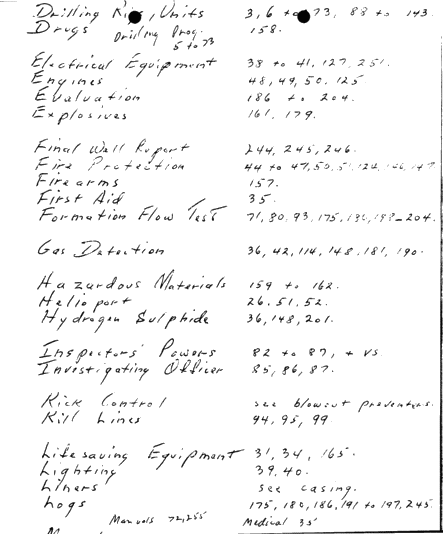 Drilling Rigs, Units 3, 6 to 73, 88 to 143.
Drugs Drilling Prog. 5 to 73 158.
Electrical Equipment 38 to 41, 127, 251.
Engines 48, 49, 50, 125
Evaluation 186 to 204.
Explosives 161, 179.
Final Well Report 244, 245, 246.
Fire Protection 44 to 47, 50, 51, 124,
Firearms 157.
First Aid 35.
Formation Flow Test 71, 80, 93, 175, 198-204.
Gas Detection 36, 42, 114, 148, 181, 190.
Hazardous Materials 159 to 162.
Heliport 26, 51, 52.
Hydrogen Sulphide 36, 148, 201.
Inspectors' Powers 82 to 87, + VS.
Investigating Officer 85, 86, 87.
Kick Control see blowout preventers.
Kill Lines 94, 95, 99
Lifesaving Equipment 31, 34, 165.
Lighting 39, 40.
Liners see casing.
Logs 175, 180, 186, 191 to 197, 245.
Manuals 72, 255 Medical 35